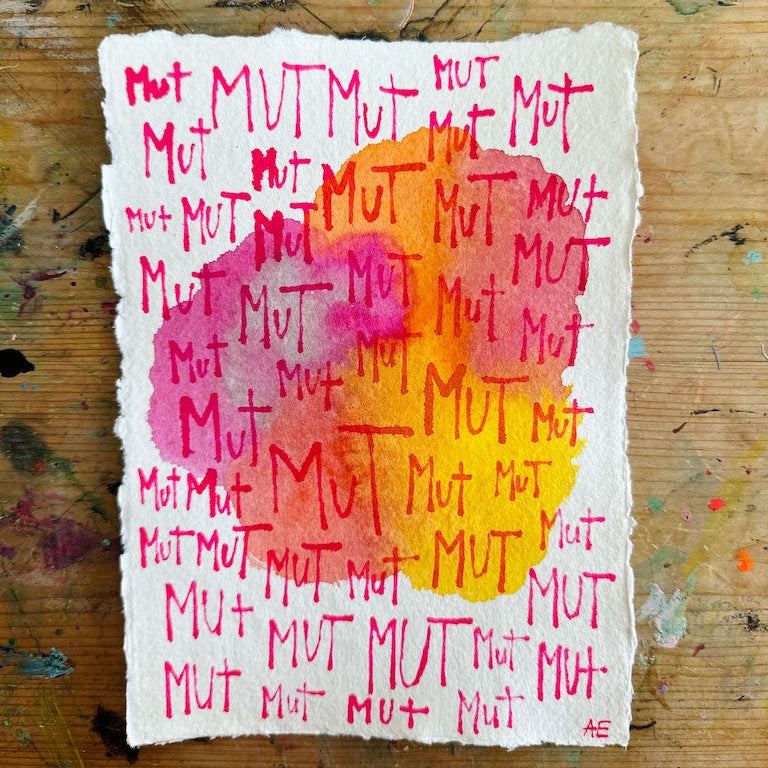 Mut MUT Mut MUT Mut
Mut Mut MUT Mut
Mut MUT Mut MUT Mut
MuT MuT MuT Mut MUT
Mut Mut MuT Mut
Mut MuT MuT Mut
Mut Mut Mut MuT
MuT MuT MuT Mut MUT Mut
Mut MUT MUT Mut MUT
Mut Mut Mut Mut Mut
AE